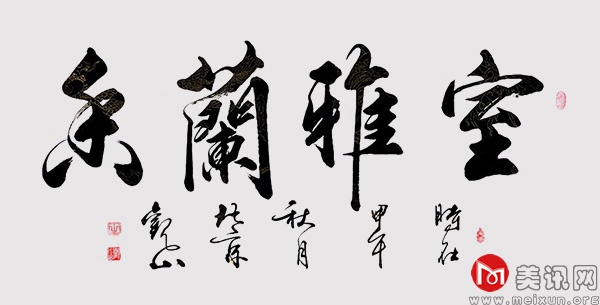 室雅蘭香
時在甲午秋月
觀山
美讯网
www.meixun.org